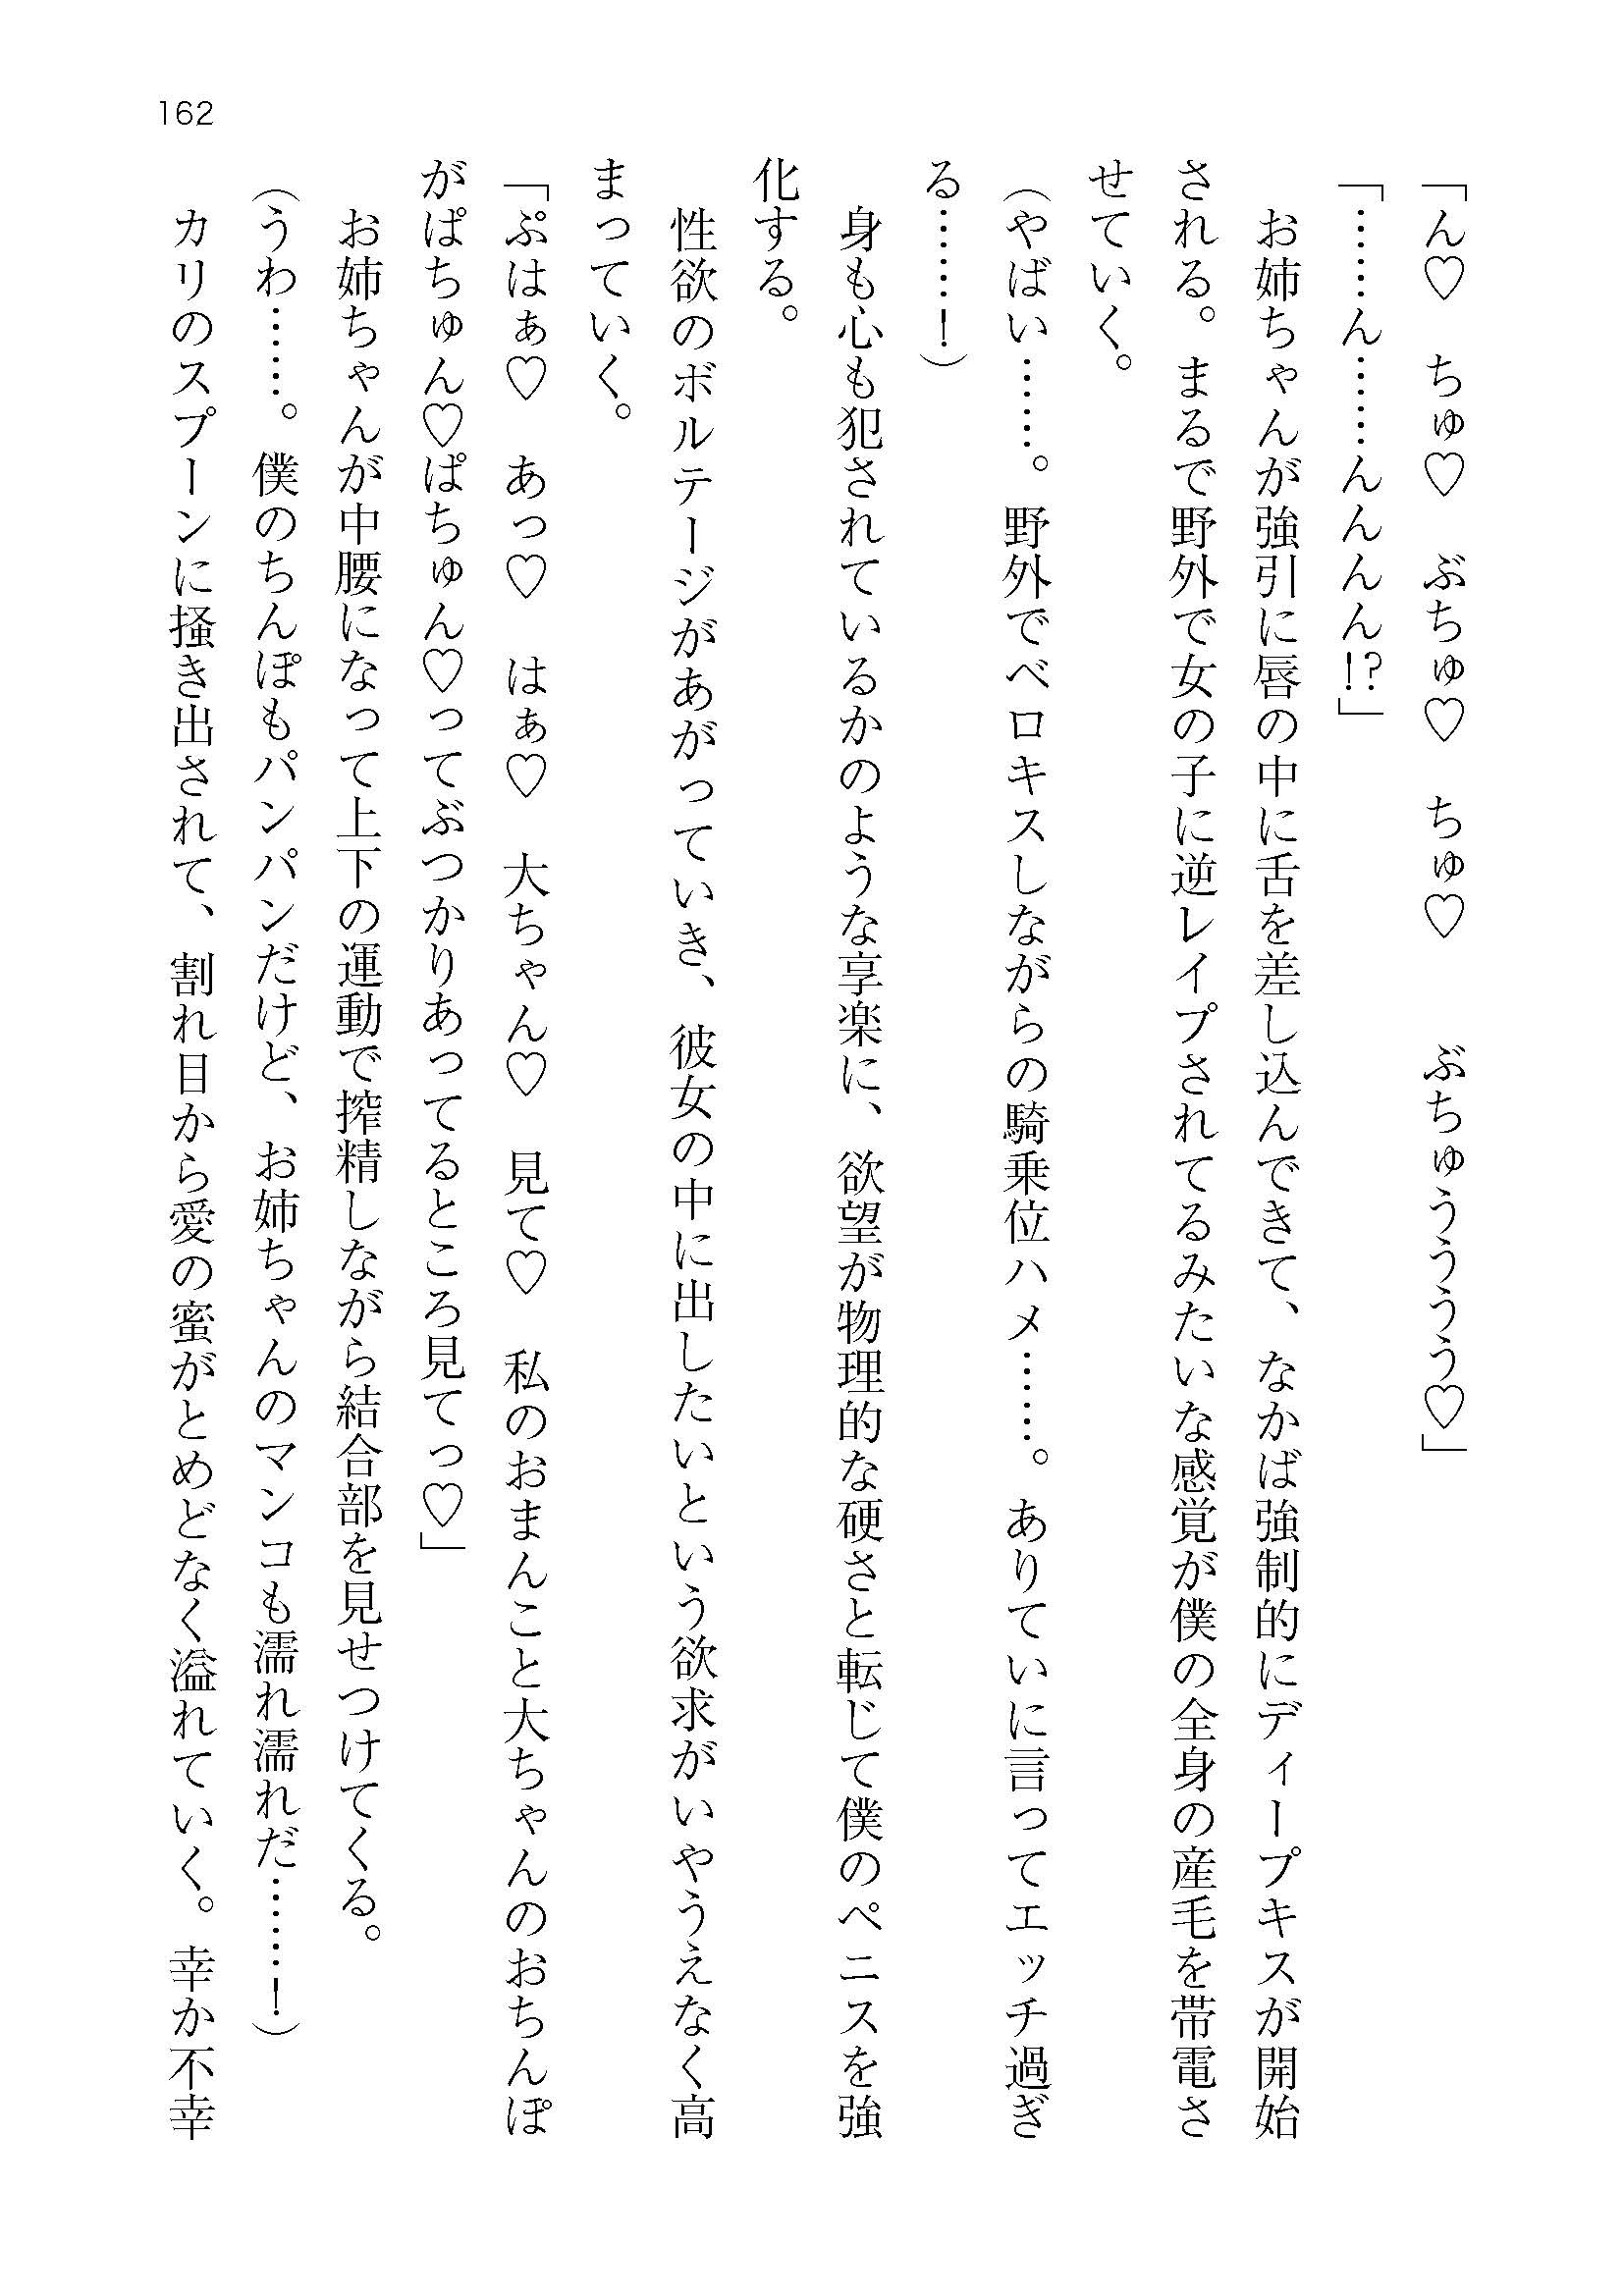 162
「ん♡　ちゅ♡　ぶちゅ♡　ちゅ♡　　ぶちゅうううう♡」
「……ん……んんんん!?」
　お姉ちゃんが強引に唇の中に舌を差し込んできて、なかば強制的にディープキスが開始
される。まるで野外で女の子に逆レイプされてるみたいな感覚が僕の全身の産毛を帯電さ
せていく。
（やばい……。野外でベロキスしながらの騎乗位ハメ……。ありていに言ってエッチ過ぎ
る……！）
　身も心も犯されているかのような享楽に、欲望が物理的な硬さと転じて僕のペニスを強
化する。
　性欲のボルテージがあがっていき、彼女の中に出したいという欲求がいやうえなく高
まっていく。
「ぷはぁ♡　あっ♡　はぁ♡　大ちゃん♡　見て♡　私のおまんこと大ちゃんのおちんぽ
がぱちゅん♡ぱちゅん♡ってぶつかりあってるところ見てっ♡」
　お姉ちゃんが中腰になって上下の運動で搾精しながら結合部を見せつけてくる。
（うわ……。僕のちんぽもパンパンだけど、お姉ちゃんのマンコも濡れ濡れだ……！）
　カリのスプーンに掻き出されて、割れ目から愛の蜜がとめどなく溢れていく。幸か不幸